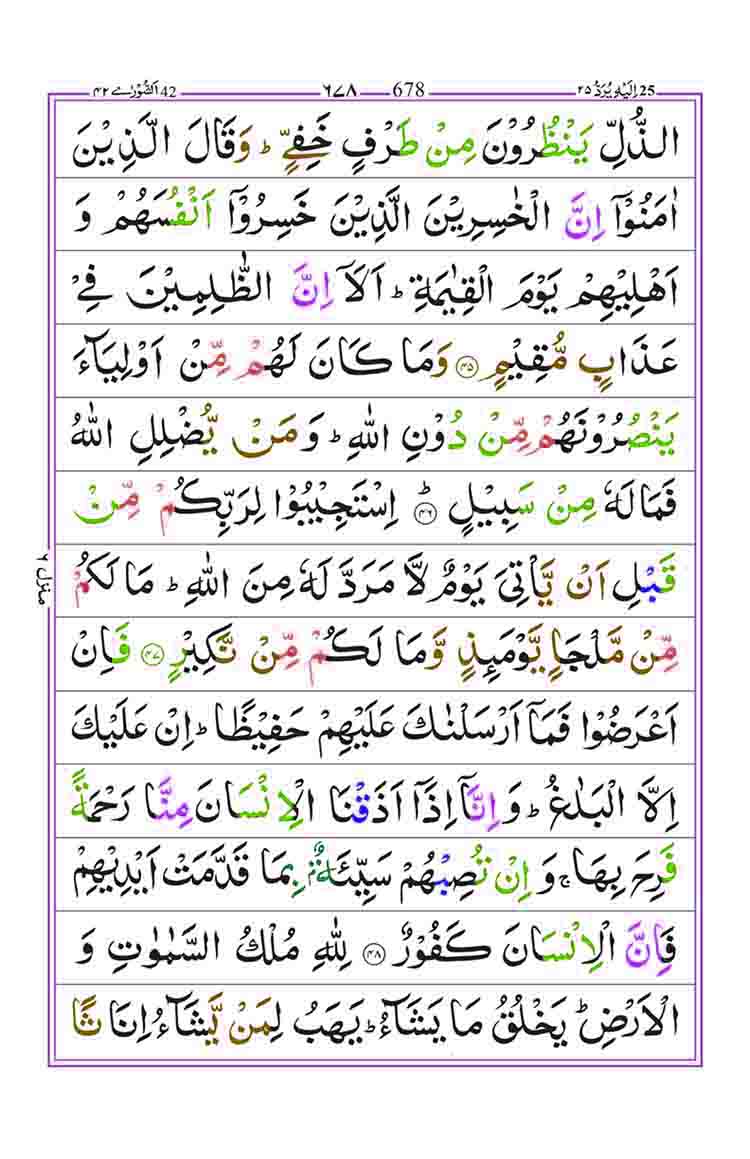 ٤٢ اَلشُّوْرٰے 42 ٦٧٨ 678 ٢٥ اِلَيْهِ يُرَدُّ 25
الذُّلِّ يَنْظُرُوْنَ مِنْ طَرْفٍ خَفِيٍّ ؕ وَقَالَ الَّذِيْنَ
اٰمَنُوْۤا اِنَّ الْخٰسِرِيْنَ الَّذِيْنَ خَسِرُوْۤا اَنْفُسَهُمْ وَ
اَهْلِيْهِمْ يَوْمَ الْقِيٰمَةِ ؕ اَلَاۤ اِنَّ الظّٰلِمِيْنَ فِيْ
عَذَابٍ مُّقِيْمٍ ﴿٤٥﴾ وَمَا كَانَ لَهُمْ مِّنْ اَوْلِيَآءَ
يَنْصُرُوْنَهُمْ مِّنْ دُوْنِ اللّٰهِ ؕ وَمَنْ يُّضْلِلِ اللّٰهُ
فَمَا لَهٗ مِنْ سَبِيْلٍ ﴿٤٦﴾ ؕ اِسْتَجِيْبُوْا لِرَبِّكُمْ مِّنْ
قَبْلِ اَنْ يَّاْتِيَ يَوْمٌ لَّا مَرَدَّ لَهٗ مِنَ اللّٰهِ ؕ مَا لَكُمْ
مِّنْ مَّلْجَاٍ يَّوْمَىِٕذٍ وَّمَا لَكُمْ مِّنْ نَّكِيْرٍ ﴿٤٧﴾ فَاِنْ
اَعْرَضُوْا فَمَاۤ اَرْسَلْنٰكَ عَلَيْهِمْ حَفِيْظًا ؕ اِنْ عَلَيْكَ
اِلَّا الْبَلٰغُ ؕ وَاِنَّاۤ اِذَاۤ اَذَقْنَا الْاِنْسَانَ مِنَّا رَحْمَةً
فَرِحَ بِهَا ۚ وَاِنْ تُصِبْهُمْ سَيِّئَةٌۢ بِمَا قَدَّمَتْ اَيْدِيْهِمْ
فَاِنَّ الْاِنْسَانَ كَفُوْرٌ ﴿٤٨﴾ لِلّٰهِ مُلْكُ السَّمٰوٰتِ وَ
الْاَرْضِ ؕ يَخْلُقُ مَا يَشَآءُ ؕ يَهَبُ لِمَنْ يَّشَآءُ اِنَا ثًا
منزل ٦